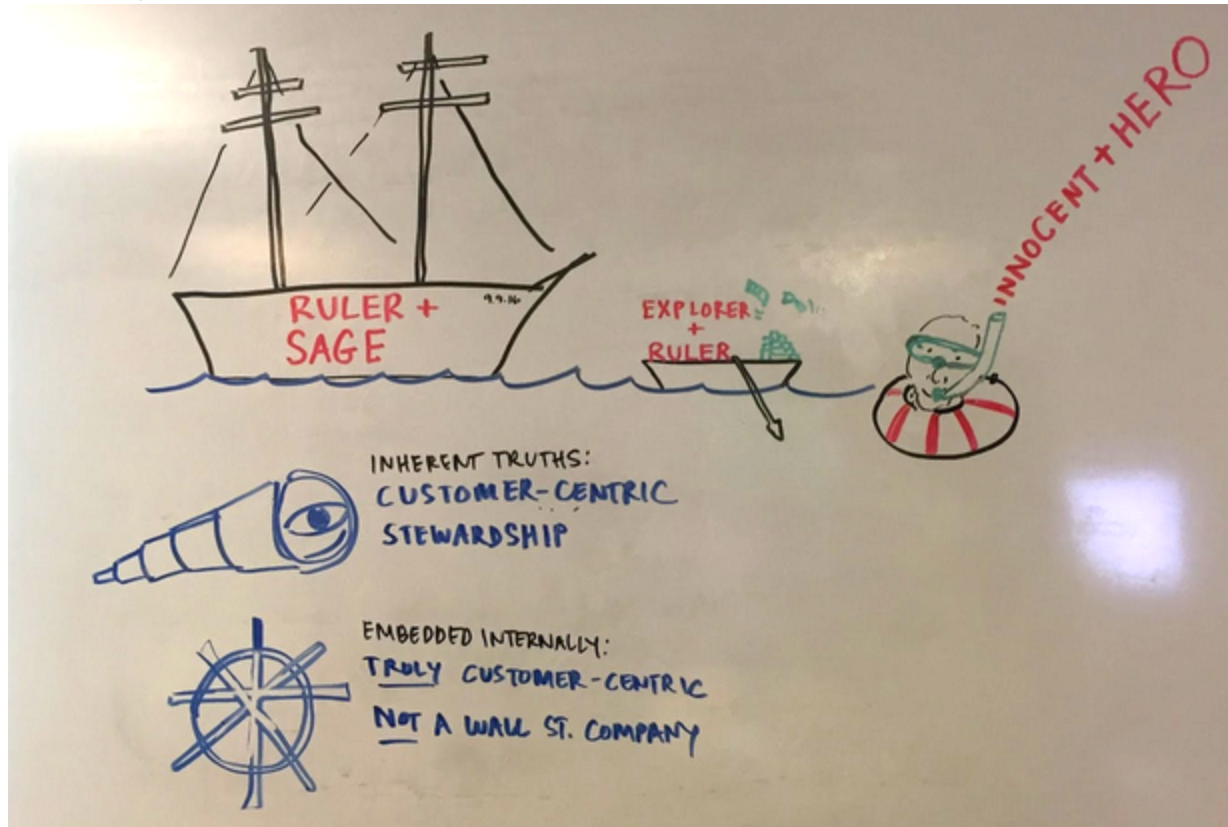 RULER +
SAGE
9.9.16
EXPLORER
+
RULER
INNOCENT + HERO
INHERENT TRUTHS:
CUSTOMER-CENTRIC
STEWARDSHIP
EMBEDDED INTERNALLY:
TRULY CUSTOMER-CENTRIC
NOT A WALL ST. COMPANY